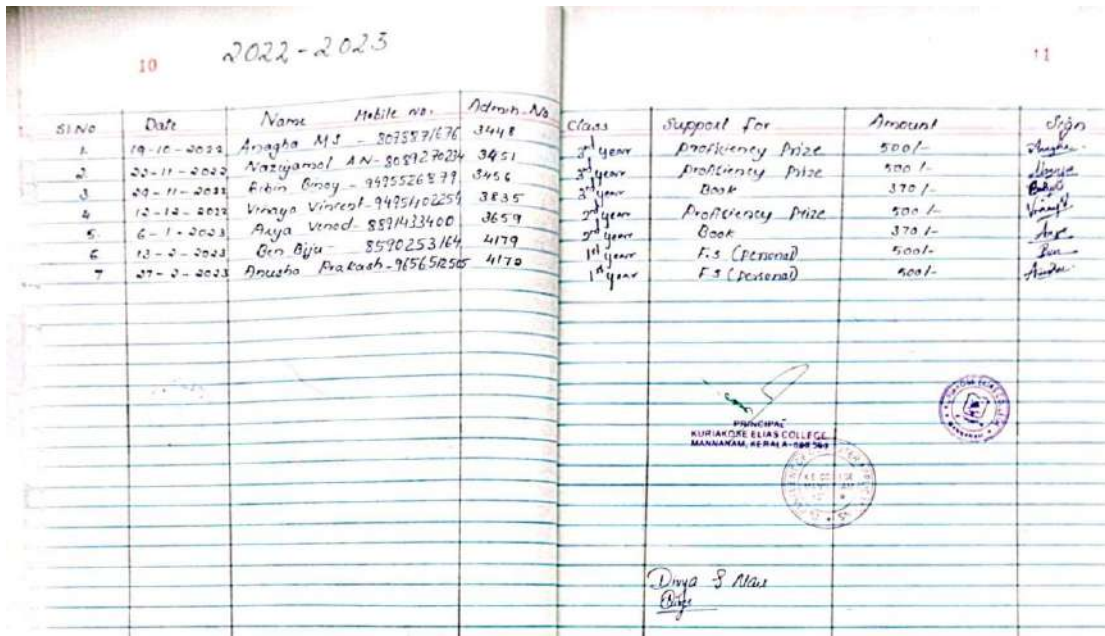 10
2022-2023
11
Sl No Date Name Mobile No. Admn. No Class Support for Amount Sign
1. 19-10-2022 Anagha M S - 8075871676 3448 3rd year Proficiency Prize 500/- Anagha
2. 22-11-2022 Naziyamol A N - 8089270234 3451 3rd year Proficiency Prize 500/-
3 29-11-2022 Bibin Binoy - 9495526879 3456 3rd year Book 370/-
4 12-12-2022 Vinaya Vincent - 9495402259 3835 2nd year Proficiency Prize 500/-
5. 6-1-2023 Arya Venod - 8891433400 3659 2nd year Book 370/-
6 13-2-2023 Ben Biju - 8590253164 4179 1st year F.S (Personal) 500/- Ben
7 27-2-2023 Anusha Prakash - 9656512505 4170 1st year F.S (Personal) 500/-
PRINCIPAL
KURIAKOSE ELIAS COLLEGE
MANNANAM, KERALA-
KURIAKOSE ELIAS COLLEGE
MANNANAM
Divya S Nair